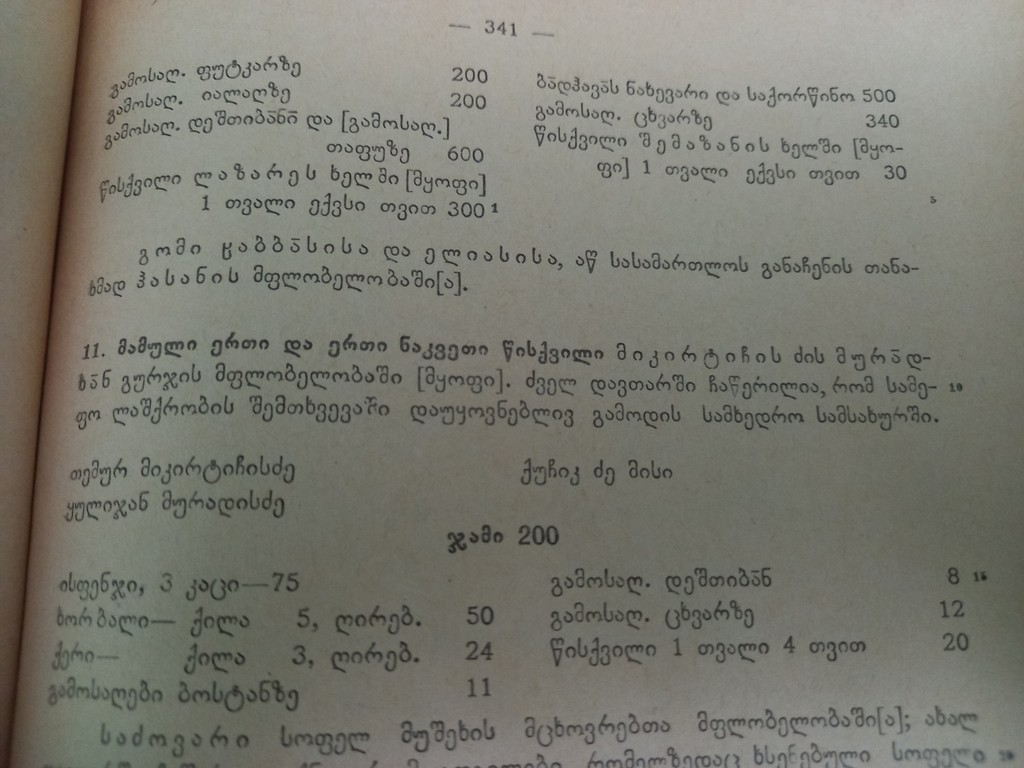 — 341 —
გამოსაღ. ფუტკარზე 200
გამოსაღ. იალაღზე 200
გამოსაღ. დეშთიბა̄ნა̄ და [გამოსაღ.]
თაფუზე 600
წისქვილი ლაზარეს ხელში [მყოფი]
1 თვალი ექვსი თვით 300¹
ბა̄დჰავა̄ს ნახევარი და საქორწინო 500
გამოსაღ. ცხვარზე 340
წისქვილი შემაზანის ხელში [მყო-
ფი] 1 თვალი ექვსი თვით 30
5
გომი ჸაბბა̄სისა და ელიასისა, აწ სასამართლოს განაჩენის თანა-
ხმად ჰასანის მფლობელობაში[ა].
11. მამული ერთი და ერთი ნაკვეთი წისქვილი მიკირტიჩის ძის მურა̄დ-
ხა̄ნ გურჯის მფლობელობაში [მყოფი]. ძველ დავთარში ჩაწერილია, რომ სამე- 10
ფო ლაშქრობის შემთხვევაში დაუყოვნებლივ გამოდის სამხედრო სამსახურში.
თემურ მიკირტიჩისძე ქუჩიკ ძე მისი
ყულიჯან მურადისძე
ჯამი 200
ისფენჯი, 3 კაცი—75
ხორბალი— ქილა 5, ღირებ. 50
ქერი— ქილა 3, ღირებ. 24
გამოსაღები ბოსტანზე 11
გამოსაღ. დეშთიბა̄ნ 8 15
გამოსაღ. ცხვარზე 12
წისქვილი 1 თვალი 4 თვით 20
საძოვარი სოფელ მუშეხის მცხოვრებთა მფლობელობაში[ა]; ახალ
რომელზედაც ხსენებული სოფელი 20